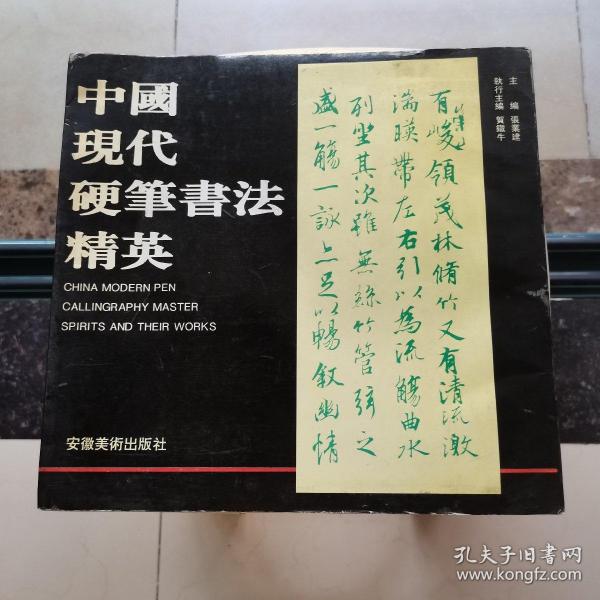 中國
現代
硬筆書法
精英
CHINA MODERN PEN
CALLINGRAPHY MASTER
SPIRITS AND THEIR WORKS
安徽美術出版社
主 編 張業建
執行主編 賀鐵牛
有崇山峻領茂林脩竹又有清流激
湍暎帶左右引以為流觴曲水
列坐其次雖無絲竹管弦之
盛一觴一詠亦足以暢叙幽情
孔夫子旧书网
www.kongfz.com